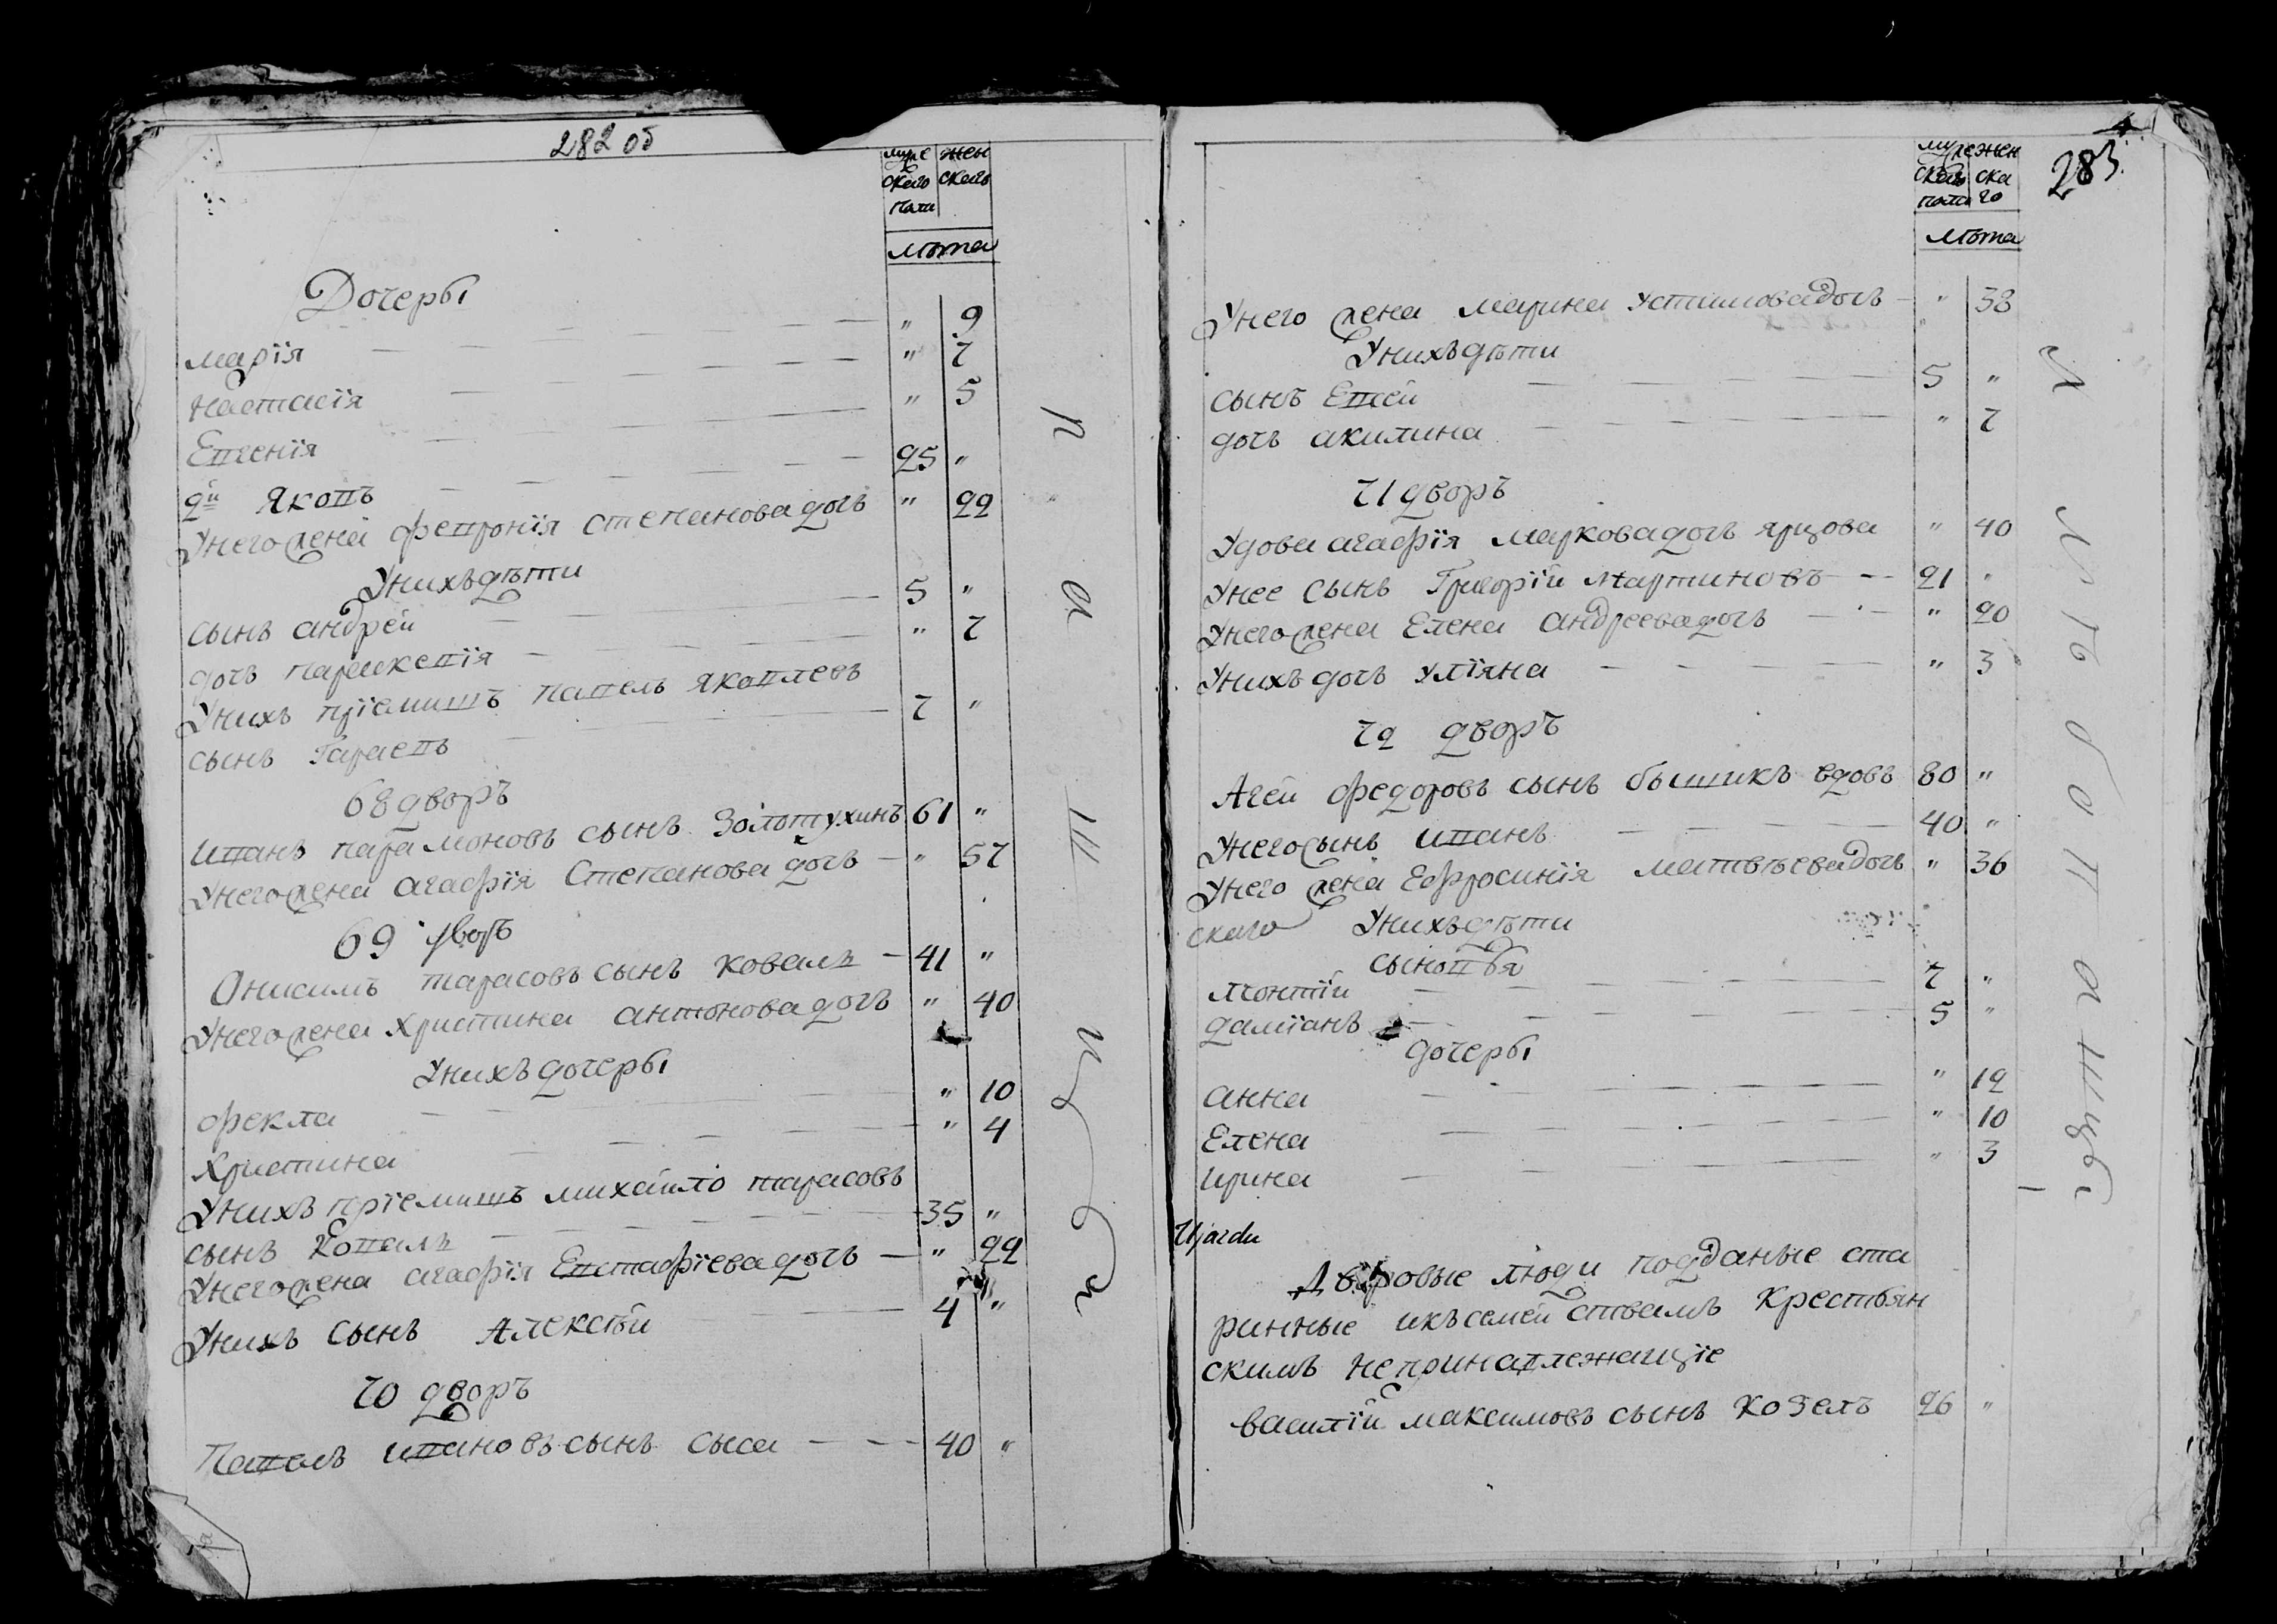 282 об
муже женскаго
скаго
пола
лѣта
Дочеры
Марїя " 9
Настасїя " 7
Евгенїя " 5
2й Яковъ 25 "
Унего жена Февронїя Степанова дочь " 22
Унихъ дѣти
сынъ андрей 5 "
дочь параскевїя " 7
Унихъ прїемишъ павелъ яковлевъ
сынъ Гараевъ 7 "
68 дворъ
Иванъ парамоновъ сынъ Золотухинъ 61 "
Унего жена агафїя Степанова дочь " 57
69 дворъ
Онисимъ тарасовъ сынъ коваль 41 "
Унего жена Христина антонова дочь " 40
Унихъ дочеры
Фекла " 10
Христина " 4
Унихъ прїемишъ михайло тарасовъ
сынъ Коваль 35 "
Унего жена агафїя Евстафїева дочь " 22
Унихъ сынъ Алексѣй 4 "
70 дворъ
Павелъ ивановъ сынъ сыса 40 "
283
муже женскаго
скаго
пола
лѣта
Унего жена марина устимова дочь " 38
Унихъ дѣти
сынъ Евсей 5 "
дочь акилина " 7
71 дворъ
Удова агафїя маркова дочь ярцова " 40
Унее сынъ Григорїй Мартиновъ 21 "
Унего жена Елена андреева дочь " 20
Унихъ дочь улїяна " 3
72 дворъ
Агей федоровъ сынъ бышикъ вдовъ 80 "
Унего сынъ иванъ 40 "
Унего жена Ефросинїя матвѣева дочь " 36
скаго Унихъ дѣти
сыновья
леонтїй 7 "
дамїанъ 5 "
дочеры
анна " 12
Елена " 10
ирина " 3
Дворовые люди подданые ста
ринные икъ семействамъ Крестьян
скимъ непринадлежащїе
василїй максимовъ сынъ Козелъ 26 "